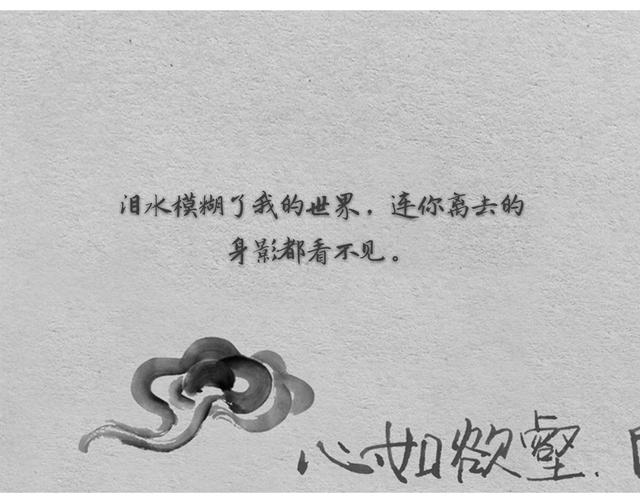 泪水模糊了我的世界，连你离去的
身影都看不见。
心如欲壑.